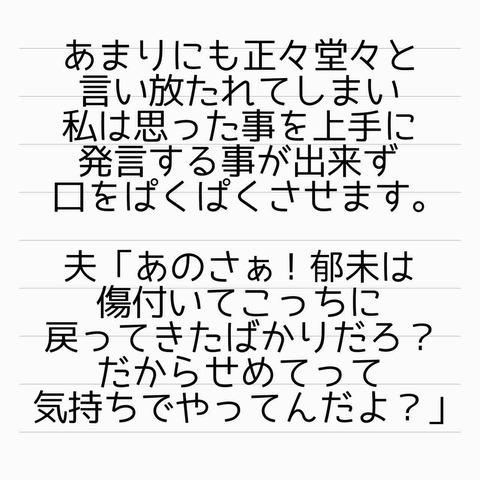 あまりにも正々堂々と
言い放たれてしまい
私は思った事を上手に
発言する事が出来ず
口をぱくぱくさせます。
夫「あのさぁ！郁未は
傷付いてこっちに
戻ってきたばかりだろ？
だからせめてって
気持ちでやってんだよ？」